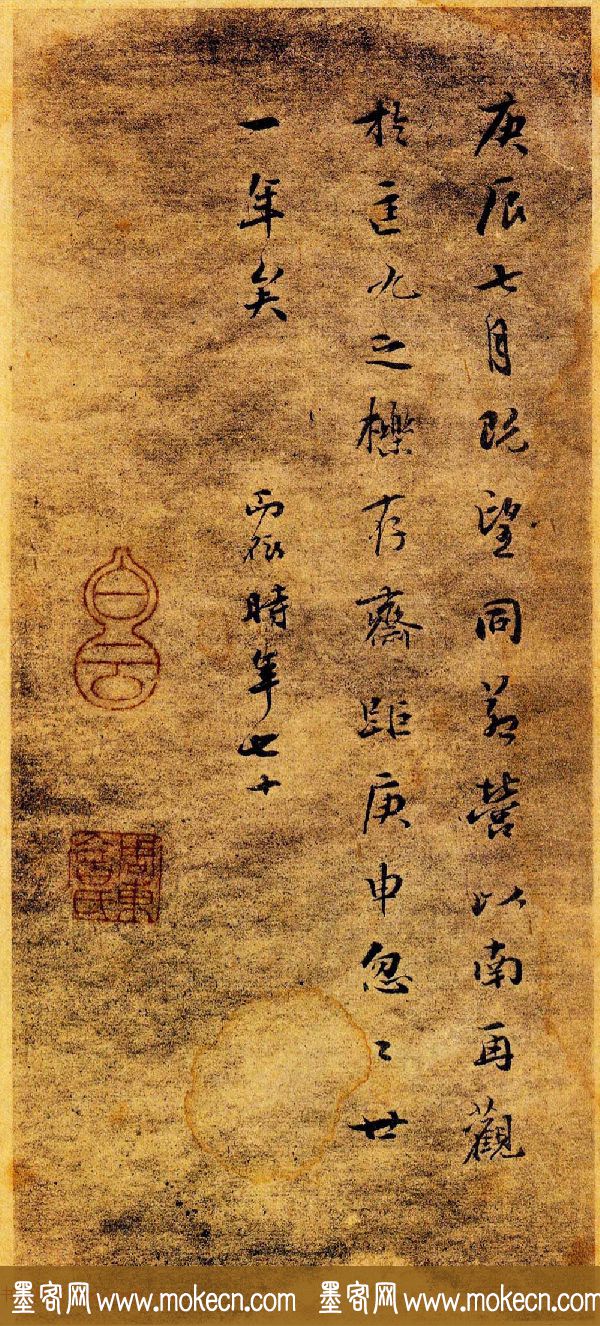 庚辰七月既望同營以南再觀
於匡九之櫟存齋距庚申忽〻廿
一年矣
時年七十
白云
墨客网 www.mokecn.com 墨客网 www.mokecn.com